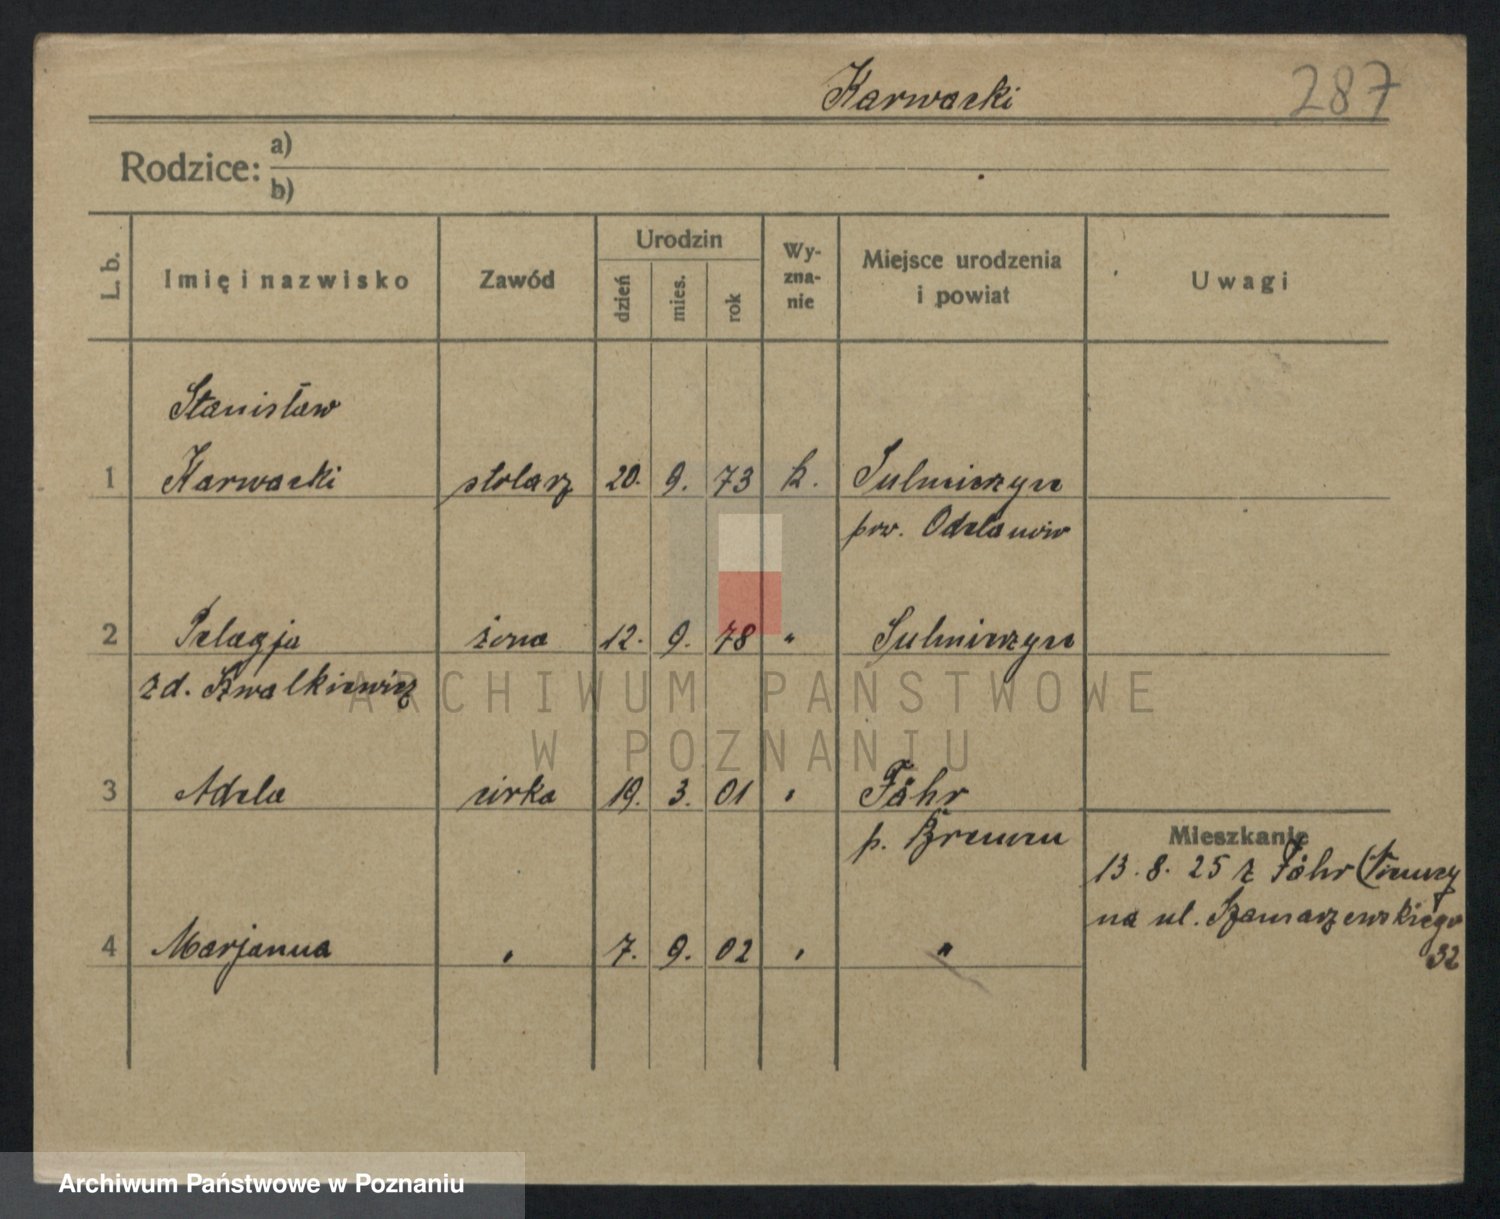 Karwacki
287
Rodzice: a)
b)
L. b.
Imię i nazwisko
Zawód
Urodzin
dzień
mies.
rok
Wy-
zna-
nie
Miejsce urodzenia
i powiat
Uwagi
Stanisław
1 Karwacki stolarz 20. 9. 73 k. Sulmierzyce
pow. Odolanów
2 Pelagja żona 12. 9. 78 " Sulmierzyce
zd. Szwalkiewicz
3 Adela córka 19. 3. 01 " Fähr
p. Bremen
4 Marjanna " 7. 9. 02 " "
Mieszkanie
13. 8. 25 z Fähr (Niemcy
na ul. Szamarzewskiego
32
ARCHIWUM PAŃSTWOWE
W POZNANIU
Archiwum Państwowe w Poznaniu